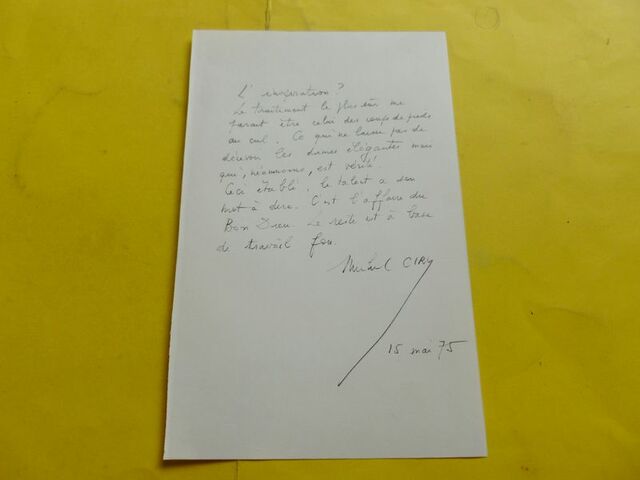 L'inspiration?
Le traitement le plus sûr me
parait être celui des coups de pieds
au cul. Ce qui ne laisse pas de
décevoir les dames élégantes mais
qui, néanmoins, est vérité.
Ceci établi, le talent a son
mot à dire. C'est l'affaire du
Bon Dieu. Le reste est à base
de travail fou.
Michel CIRY
15 mai 75